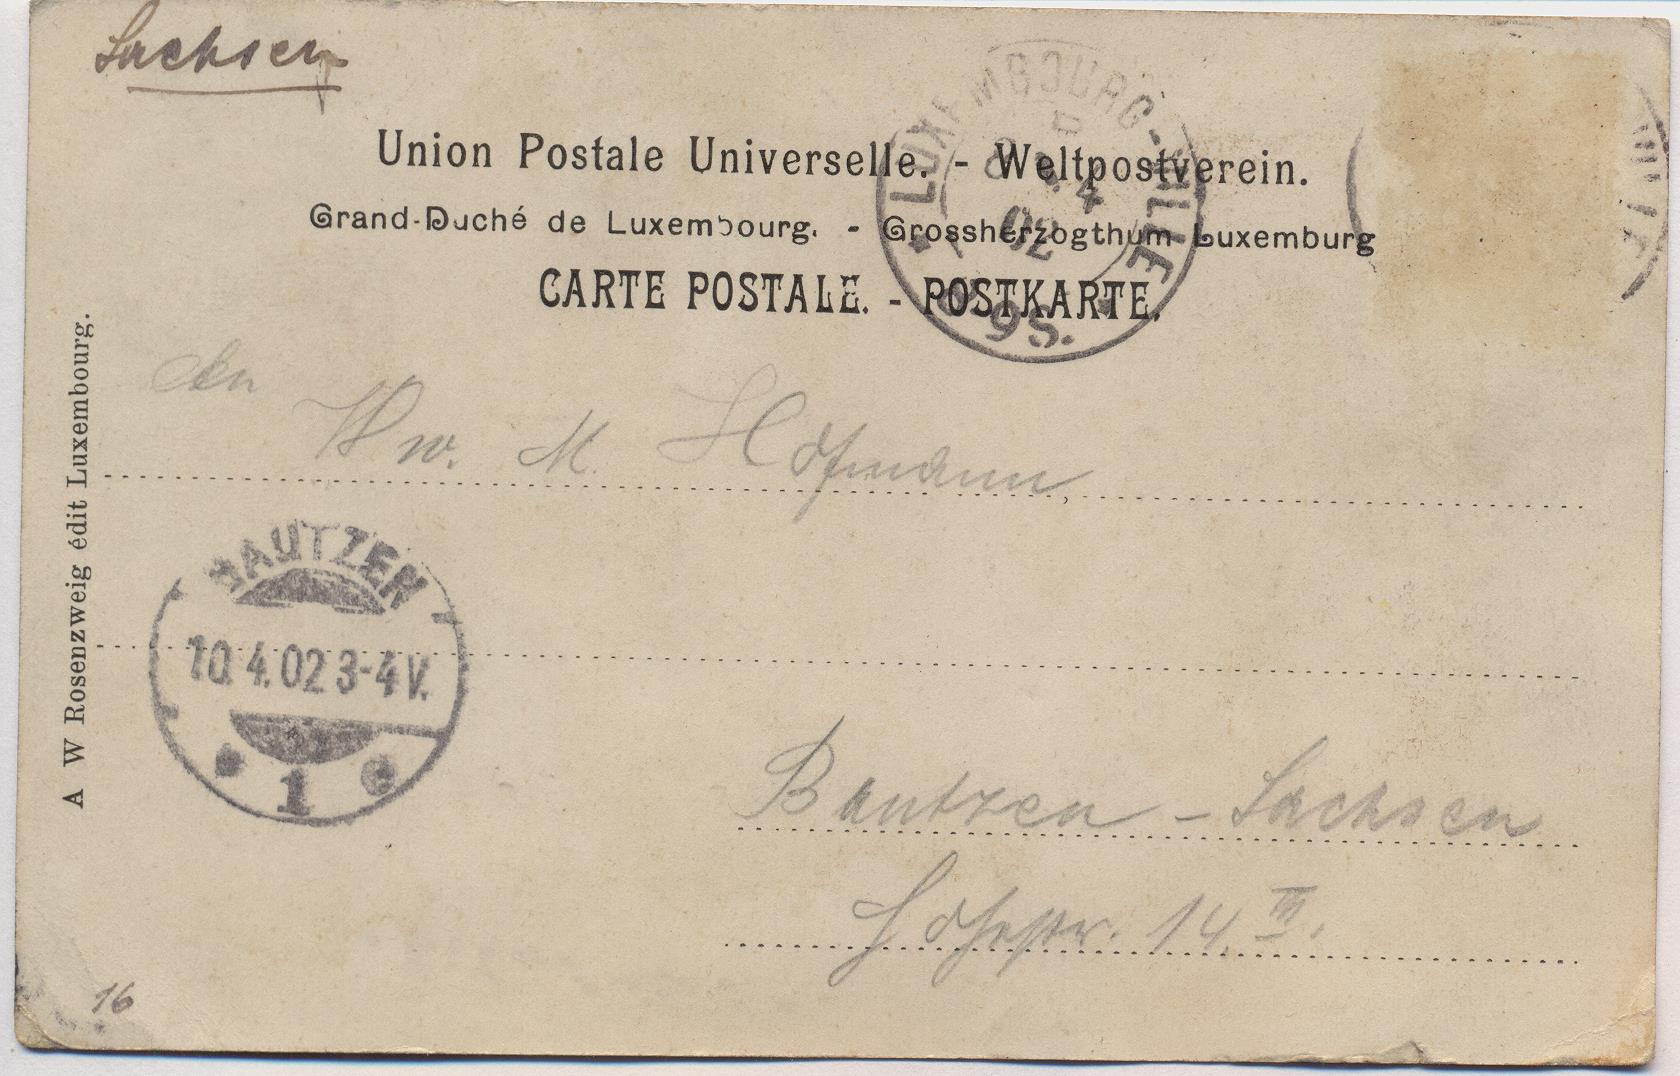 Sachsen
Union Postale Universelle. - Weltpostverein.
Grand-Duché de Luxembourg. - Grossherzogthum Luxemburg
CARTE POSTALE. - POSTKARTE.
LUXEMBOURG-VILLE
8 4
02
9S.
A W Rosenzweig édit Luxembourg.
An
Ww. M. Hofmann,
BAUTZEN
10.4.02 3-4 V.
1
Bautzen - Sachsen
Hohestr. 14. III.
16